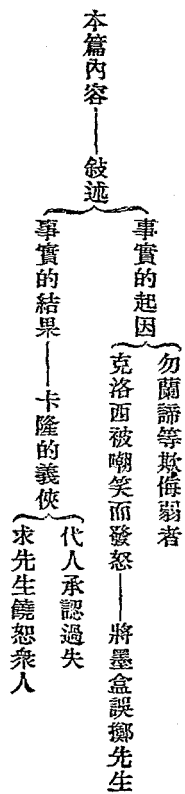 本篇內容——敍述
事實的起因
勿蘭諦等欺侮弱者
克洛西被嘲笑而發怒——將墨盒誤擲先生
事實的結果——卡隆的義俠
代人承認過失
求先生饒恕衆人